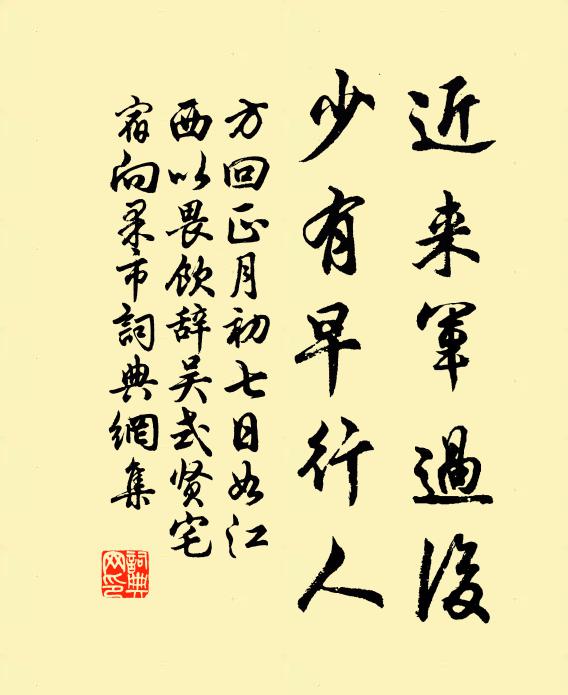 近来軍過後
少有早行人
方回正月初七日如江
西以畏飲辞吴式贤宅
宿向市詞典網集
詞典网印